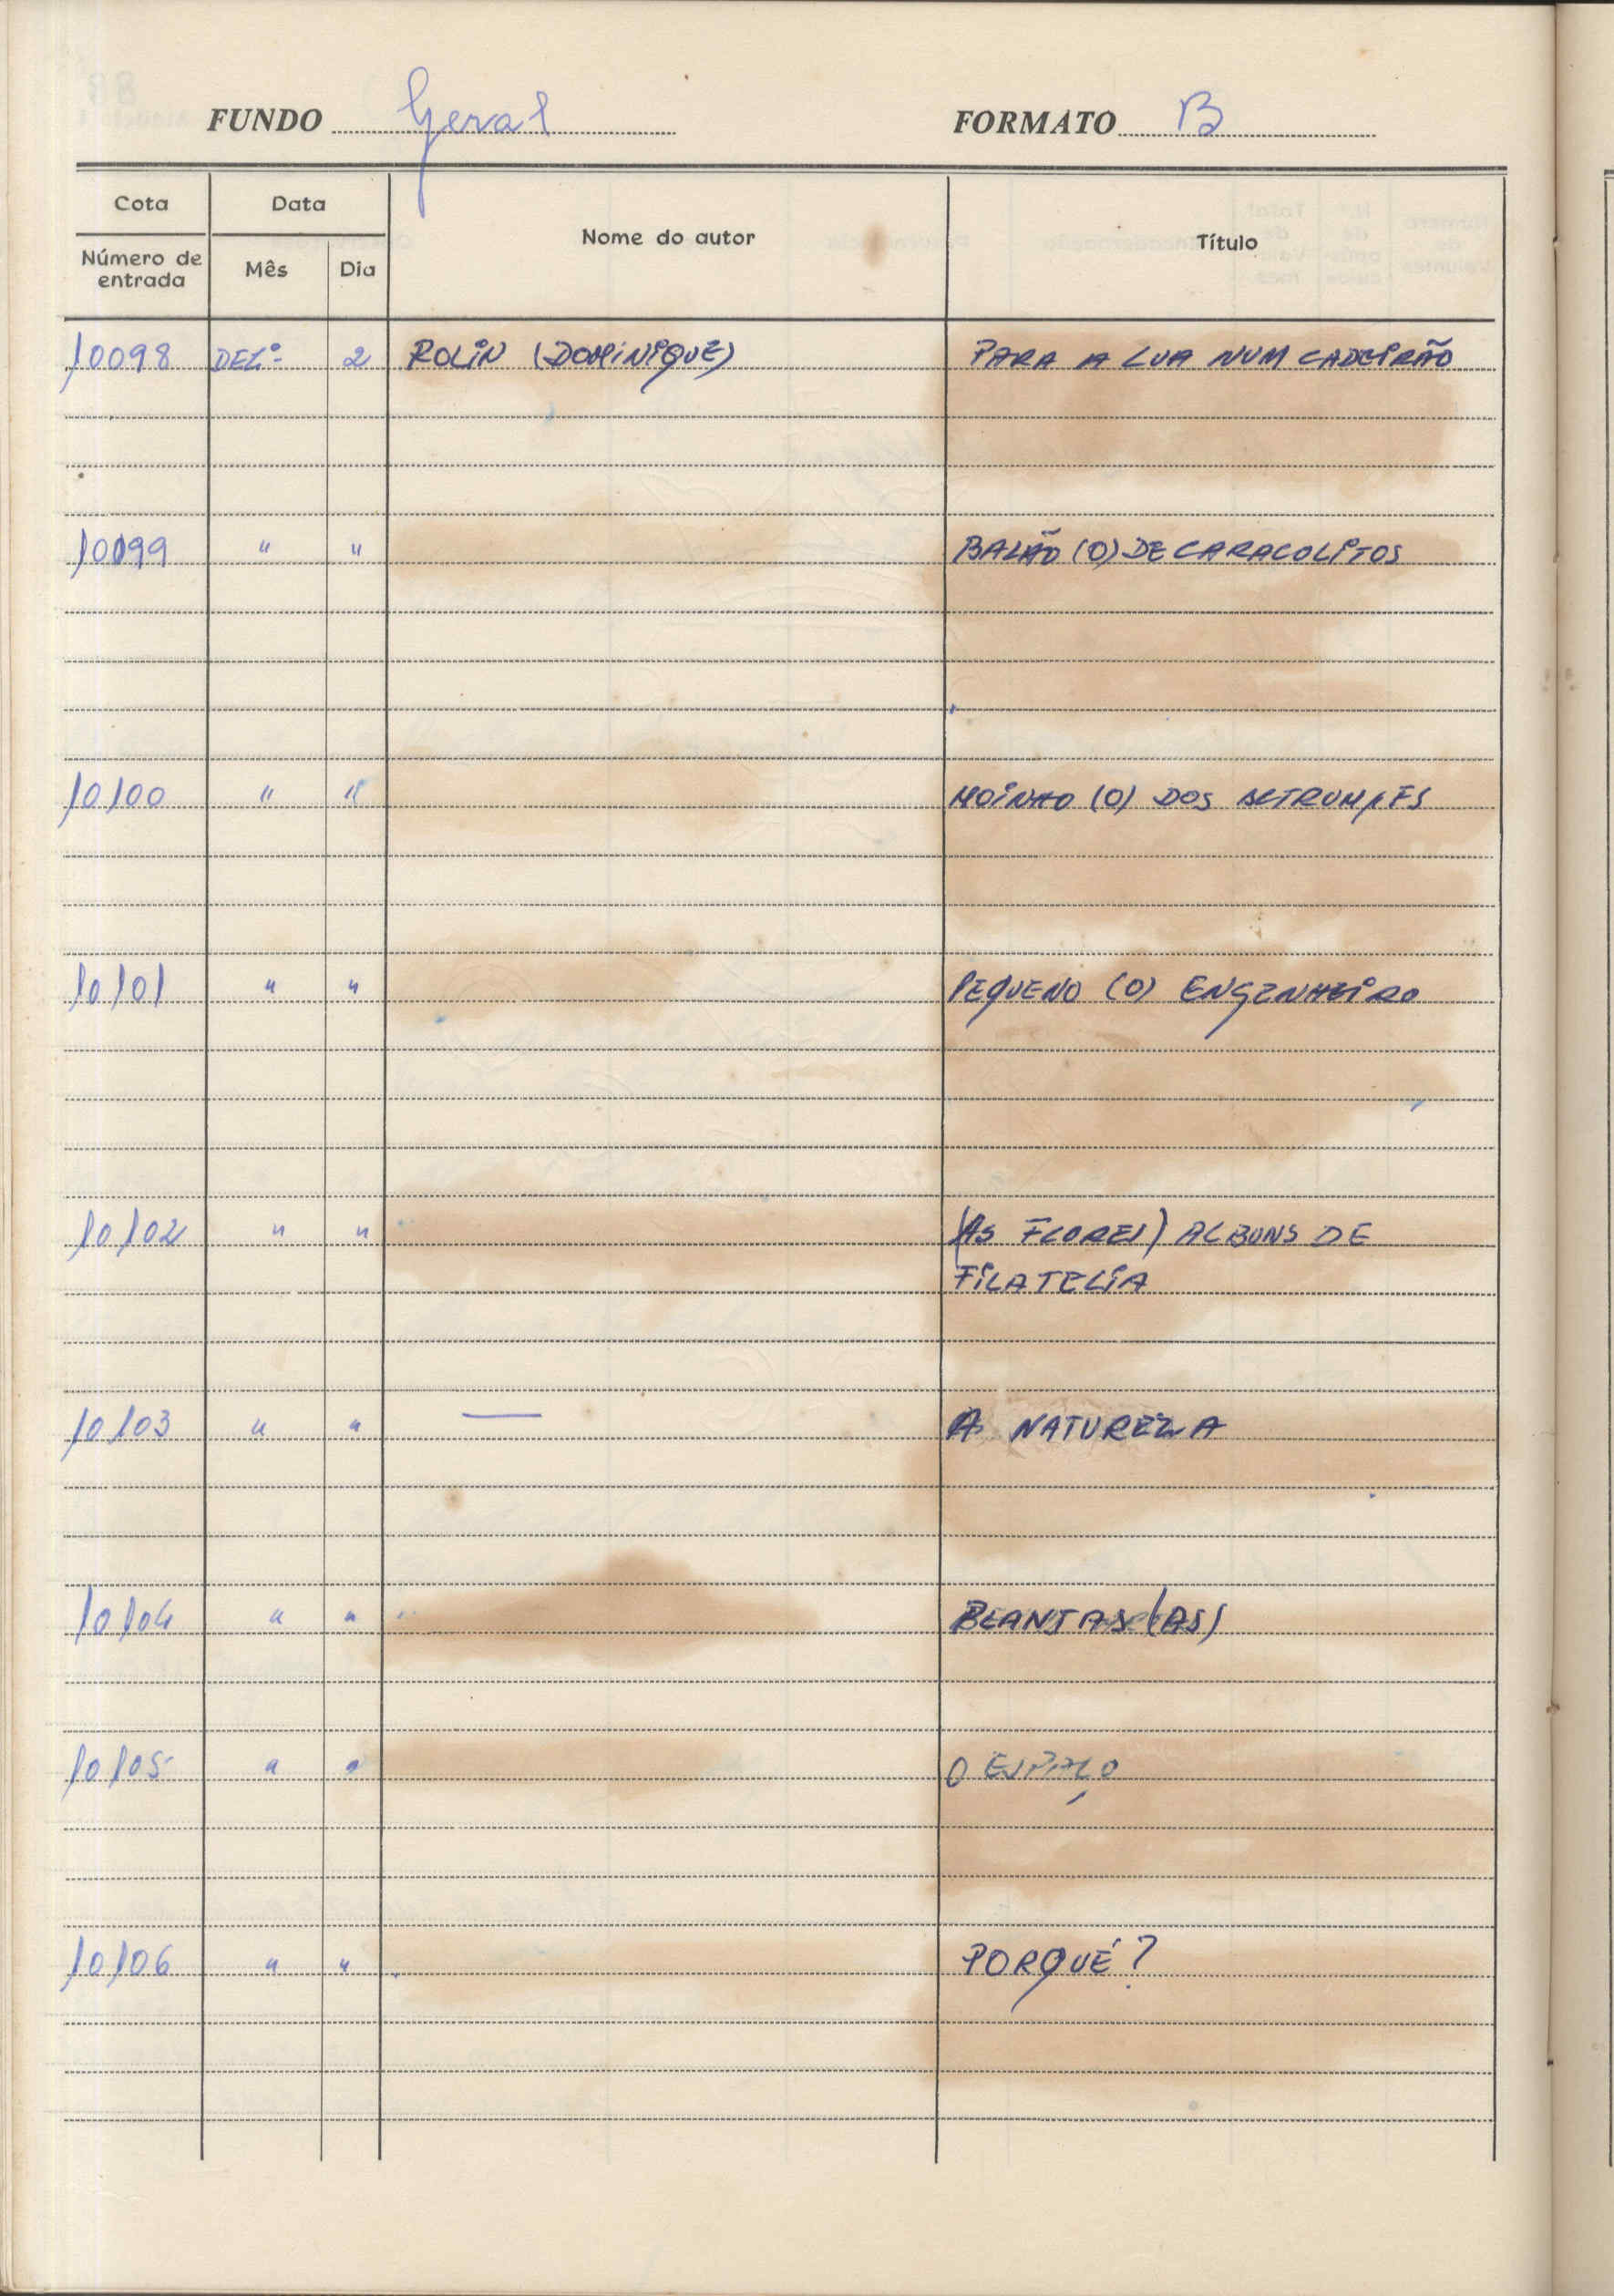 FUNDO Geral FORMATO B
Cota Data Nome do autor Título
Número de entrada Mês Dia
10098 DEZº 2 ROLIN (DOMINIQUE) PARA A LUA NUM CADEIRÃO
10099 " " BALÃO (O) DE CARACOLITOS
10100 " " MOINHO (O) DOS
10101 " " PEQUENO (O) ENGENHEIRO
10102 " " (AS FLORES) ALBUNS DE
FILATELIA
10103 " " — A NATUREZA
10104 " " PLANTAS (AS)
10105 " " O ESPAÇO
10106 " " PORQUÉ?